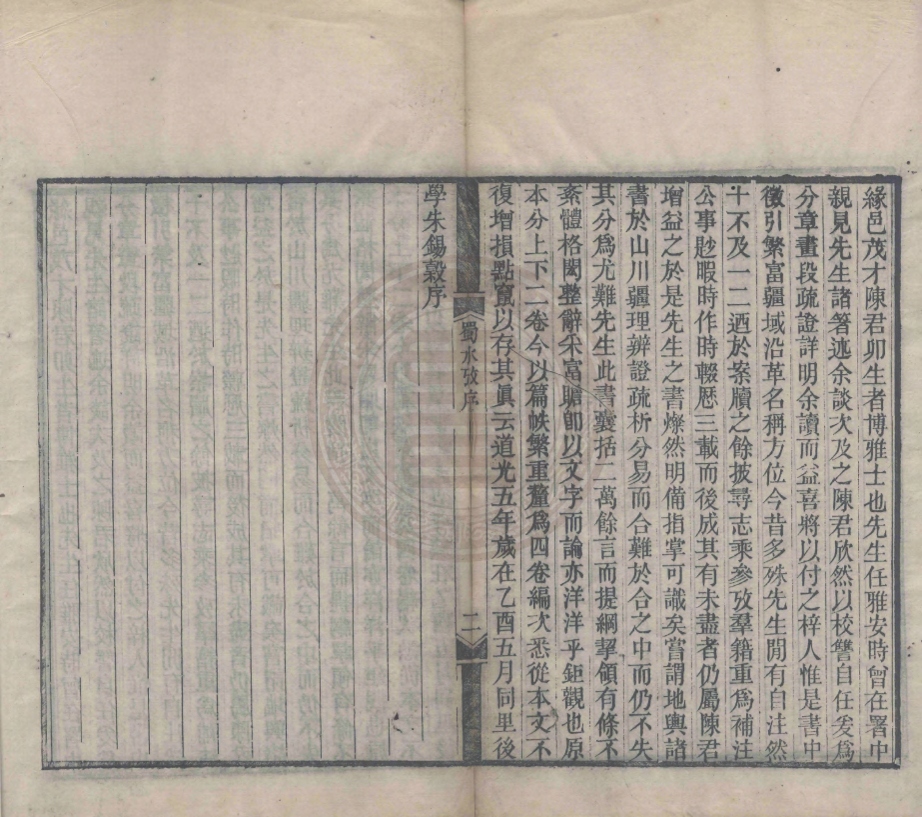 緣邑茂才陳君卯生者博雅士也先生任雅安時曾在署中
親見先生諸箸述余談次及之陳君欣然以校讐自任爰爲
分章畫段疏證詳明余讀而益喜將以付之梓人惟是書中
徵引繁富疆域沿革名稱方位今昔多殊先生閒有自注然
十不及一二迺於案牘之餘披尋志乘參攷羣籍重爲補注
公事尟暇時作時輟厯三載而後成其有未盡者仍屬陳君
增益之於是先生之書燦然明備指掌可識矣嘗謂地輿諸
書於山川疆理辨證疏析分易而合難於合之中而仍不失
其分爲尤難先生此書囊括二萬餘言而提綱挈領有條不
紊體格閎整辭采富贍卽以文字而論亦洋洋乎鉅觀也原
本分上下二卷今以篇帙繁重釐爲四卷編次悉從本文不
復增損點竄以存其眞云道光五年歲在乙酉五月同里後
學朱錫穀序
蜀水攷序
二